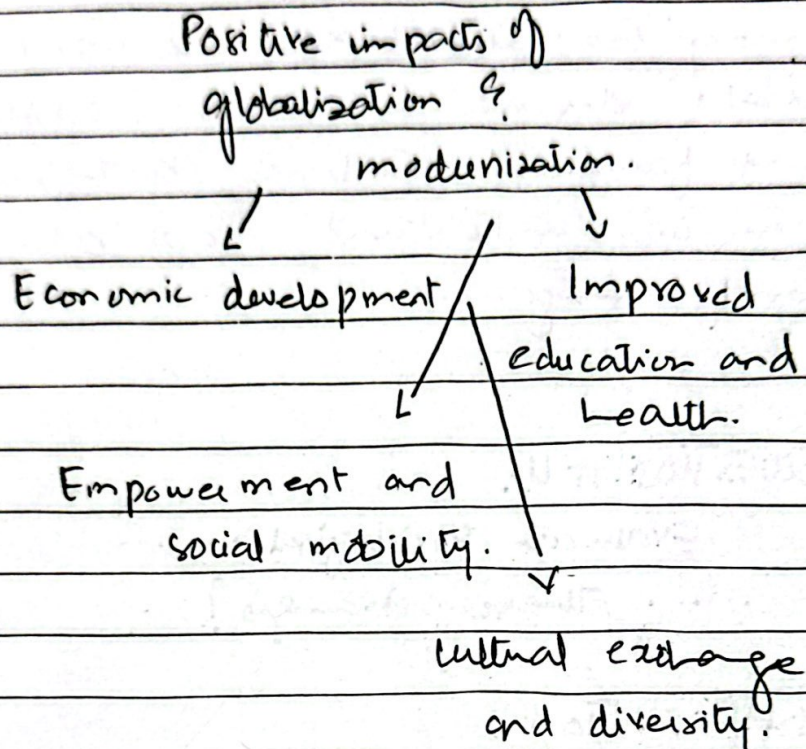 Positive impacts of
globalization &
modernization.
Economic development
Improved
education and
health.
Empowerment and
social mobility.
cultural exchange
and diversity.